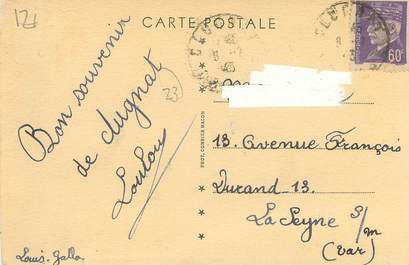 12f
CARTE POSTALE
60c
23
Bon souvenir
de Lugnat
Loulou
PHOT. COMBIER MACON
13. Avenue François
Durand-13.
La Seyne s/m
(Var)
Louis-Gallo